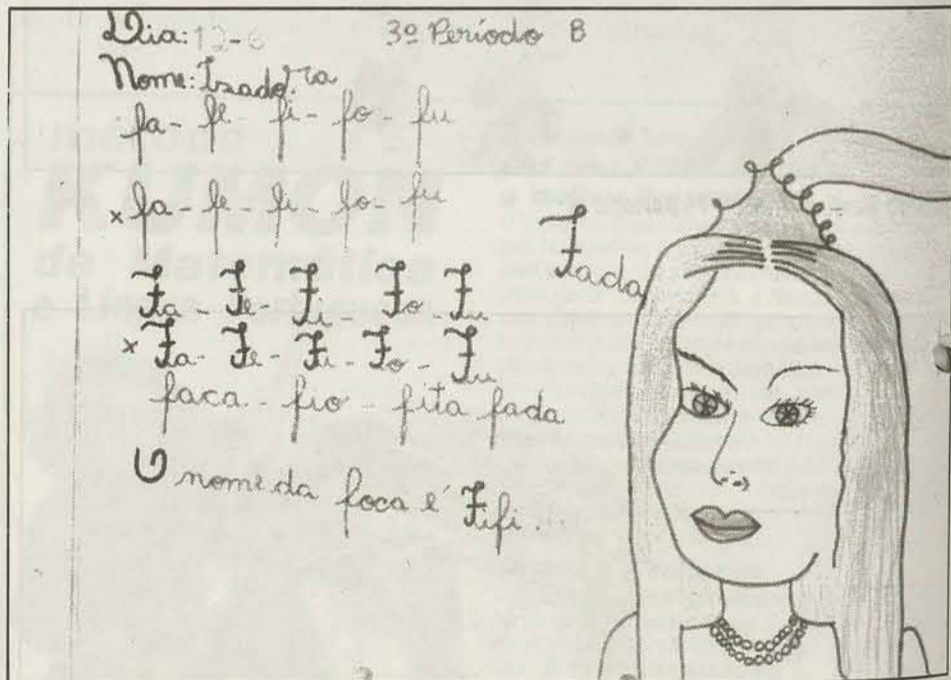 Dia: 12-6 3º Período B
Nome: Izadora
fa - fe - fi - fo - fu
x fa - fe - fi - fo - fu
Fa - Fe - Fi - Fo - Fu
x Fa - Fe - Fi - Fo - Fu
faca - fio - fita fada
O nome da foca é Fifi.
Fada